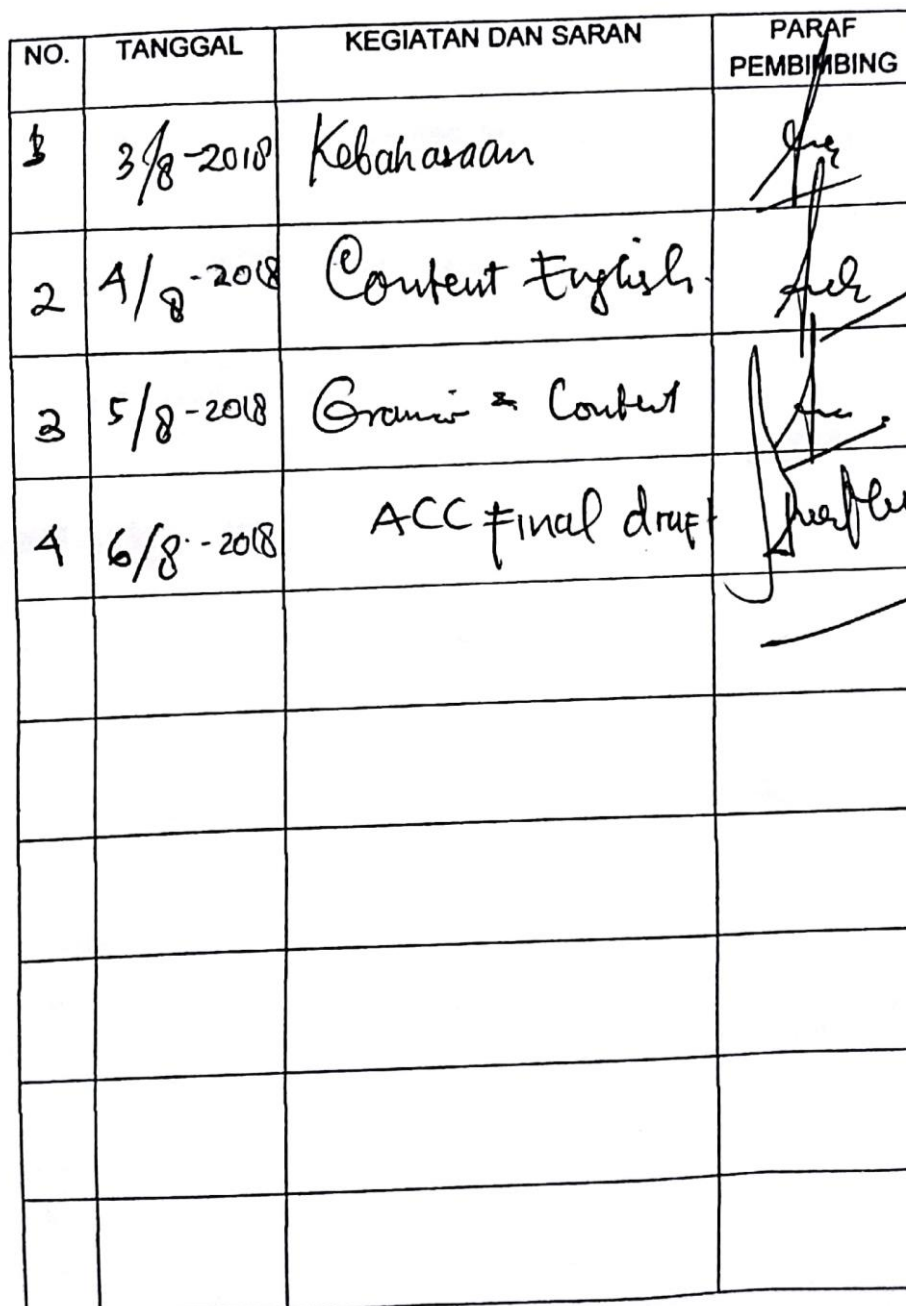 NO. TANGGAL KEGIATAN DAN SARAN PARAF PEMBIMBING
1 3/8-2018 Kebahasaan
2 4/8-2018 Content English.
3 5/8-2018 & Content
4 6/8-2018 ACC Final draft